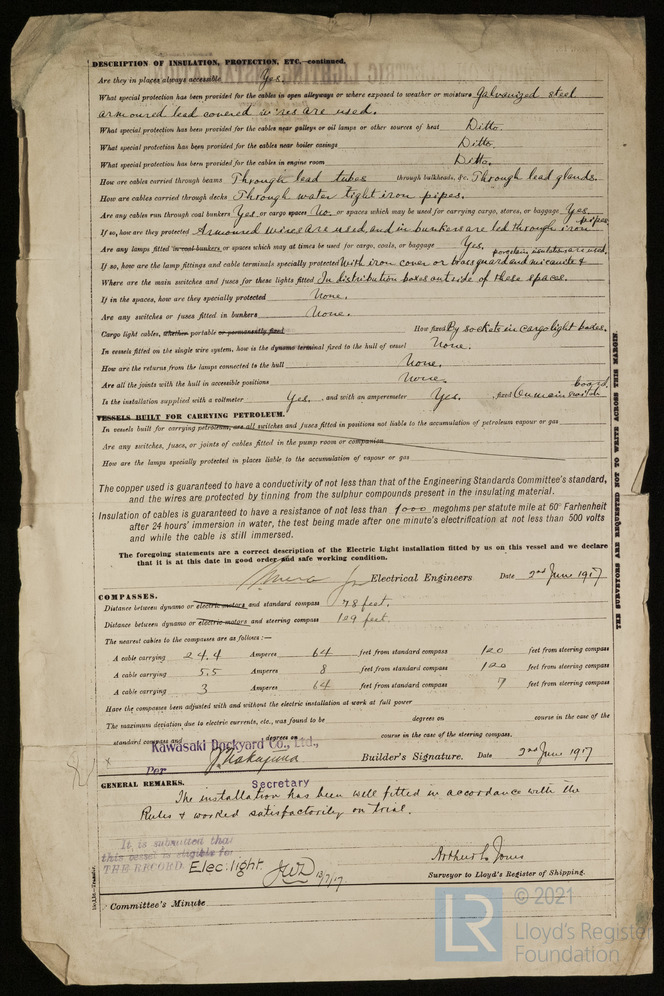 DESCRIPTION OF INSULATION, PROTECTION, ETC.—continued.
Are they in places always accessible Yes.
What special protection has been provided for the cables in open alleyways or where exposed to weather or moisture Galvanized steel
armoured lead covered wires are used.
What special protection has been provided for the cables near galleys or oil lamps or other sources of heat Ditto.
What special protection has been provided for the cables near boiler casings Ditto.
What special protection has been provided for the cables in engine room Ditto.
How are cables carried through beams Through lead tubes through bulkheads, &c. Through lead glands.
How are cables carried through decks Through water tight iron pipes.
Are any cables run through coal bunkers Yes or cargo spaces No. or spaces which may be used for carrying cargo, stores, or baggage Yes
If so, how are they protected Armoured wires are used, and in bunkers are led through iron pipes.
Are any lamps fitted in coal bunkers or spaces which may at times be used for cargo, coals, or baggage Yes,
If so, how are the lamp fittings and cable terminals specially protected With iron cover or brass guard and micanite & porcelain insulators are used.
Where are the main switches and fuses for these lights fitted In distribution boxes outside of these spaces.
If in the spaces, how are they specially protected None.
Are any switches or fuses fitted in bunkers None.
Cargo light cables, whether portable or permanently fixed How fixed By sockets in cargo light boxes.
In vessels fitted on the single wire system, how is the dynamo terminal fixed to the hull of vessel None.
How are the returns from the lamps connected to the hull None.
Are all the joints with the hull in accessible positions None.
Is the installation supplied with a voltmeter Yes. , and with an amperemeter Yes. , fixed On main switch board.
VESSELS BUILT FOR CARRYING PETROLEUM.
In vessels built for carrying petroleum, are all switches and fuses fitted in positions not liable to the accumulation of petroleum vapour or gas
Are any switches, fuses, or joints of cables fitted in the pump room or companion
How are the lamps specially protected in places liable to the accumulation of vapour or gas
The copper used is guaranteed to have a conductivity of not less than that of the Engineering Standards Committee's standard,
and the wires are protected by tinning from the sulphur compounds present in the insulating material.
Insulation of cables is guaranteed to have a resistance of not less than 1000 megohms per statute mile at 60° Farhenheit
after 24 hours' immersion in water, the test being made after one minute's electrification at not less than 500 volts
and while the cable is still immersed.
The foregoing statements are a correct description of the Electric Light installation fitted by us on this vessel and we declare
that it is at this date in good order and safe working condition.
Electrical Engineers Date 2nd June 1917
COMPASSES.
Distance between dynamo or electric motors and standard compass 78 feet.
Distance between dynamo or electric motors and steering compass 109 feet.
The nearest cables to the compasses are as follows:—
A cable carrying 24.4 Amperes 64 feet from standard compass 120 feet from steering compass
A cable carrying 5.5 Amperes 8 feet from standard compass 120 feet from steering compass
A cable carrying 3 Amperes 64 feet from standard compass 7 feet from steering compass
Have the compasses been adjusted with and without the electric installation at work at full power
The maximum deviation due to electric currents, etc., was found to be degrees on course in the case of the
standard compass and degrees on course in the case of the steering compass.
Kawasaki Dockyard Co., Ltd.,
Per Builder's Signature. Date 2nd June 1917
Secretary
GENERAL REMARKS.
The installation has been well fitted in accordance with the
Rules & worked satisfactorily on trial.
It is submitted that
this vessel is eligible for
THE RECORD. Elec. light. JWD 13/7/17
Arthur L. Jones
Surveyor to Lloyd's Register of Shipping.
Committee's Minute
THE SURVEYORS ARE REQUESTED NOT TO WRITE ACROSS THIS MARGIN.
LR
© 2021
Lloyd's Register
Foundation